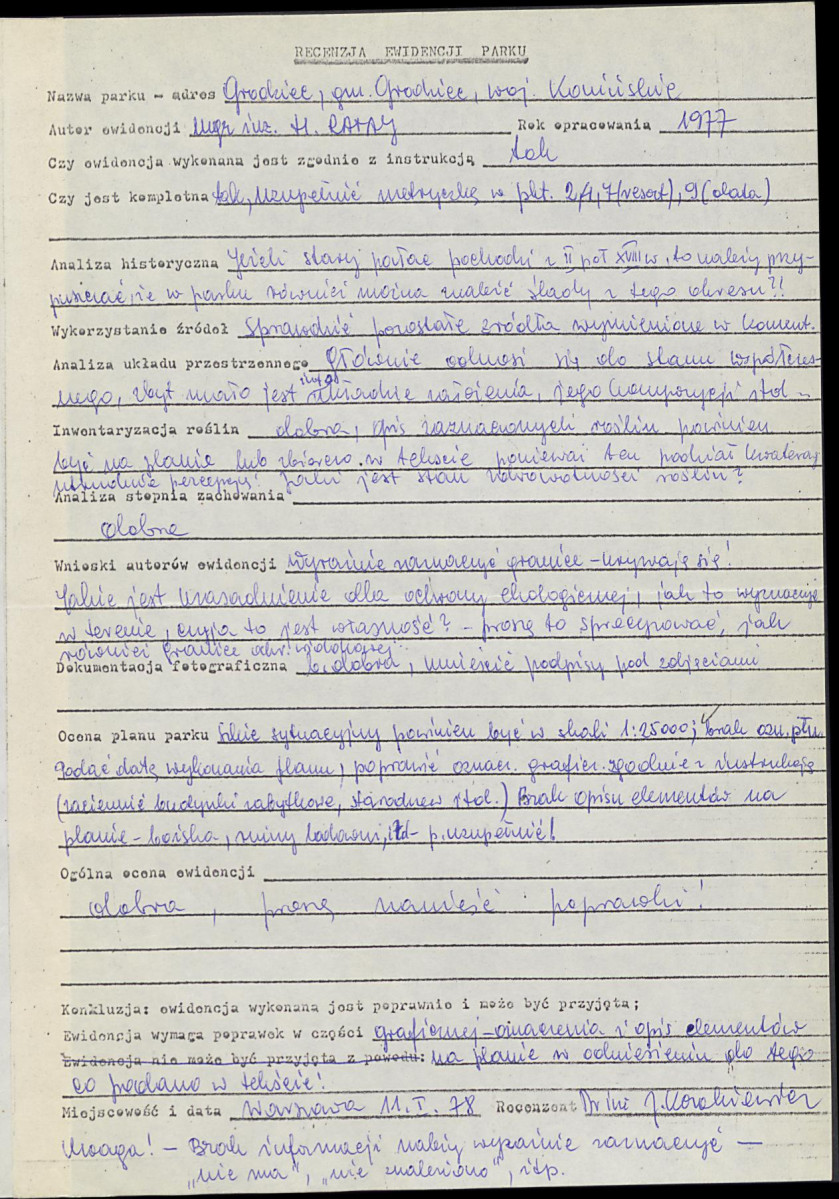 RECENZJA EWIDENCJI PARKU
Nazwa parku - adres Grodziec, gm. Grodziec, woj. Konińskie
Autor ewidencji mgr inż. H. RATAJ Rok opracowania 1977
Czy ewidencja wykonana jest zgodnie z instrukcją tak
Czy jest kompletna tak, uzupełnić metryczkę w pkt. 2/4, 7(resort), 9(data)
Analiza historyczna Jeżeli stary pałac pochodzi z II poł XVIII w. to należy przy-
puszczać, że w parku również można znaleźć ślady z tego okresu?!
Wykorzystanie źródeł Sprawdzić pozostałe źródła wymienione w koment.
Analiza układu przestrzennego Głównie odnosi się do stanu współczes-
nego, zbyt mało jest układzie założenia, jego kompozycji itd -
Inwentaryzacja roślin dobra, opis zaznaczonych roślin powinien
być na planie lub zbiorczo w tekście ponieważ ten podział kwaterny
utrudnia percepcję! Jaki jest stan zdrowotności roślin?
Analiza stopnia zachowania
dobra
Wnioski autorów ewidencji Wyraźnie zaznaczyć granice - urywają się!
Jakie jest uzasadnienie dla ochrony ekologicznej, jak to wyznaczyć
w terenie, czyja to jest własność? - proszę to sprecyzować, jak
również granice ochr. widokowej.
Dokumentacja fotograficzna b. dobra, umieścić podpisy pod zdjęciami
Ocena planu parku Szkic sytuacyjny powinien być w skali 1:25000; brak ozn. płn.
Podać datę wykonania planu, poprawić oznacz. graficz. zgodnie z instrukcją
(zaciemnić budynki zabytkowe, starodrzew itd.) Brak opisu elementów na
planie - boiska, ruiny itd - p. uzupełnić!
Ogólna ocena ewidencji
dobra, proszę nanieść poprawki!
Konkluzja: ewidencja wykonana jest poprawnie i może być przyjęta;
Ewidencja wymaga poprawek w części graficznej - oznaczenia i opis elementów
Ewidencja nie może być przyjęta z powodu: na planie w odniesieniu do tego
co podano w tekście!
Miejscowość i data Warszawa 11.I.78 Recenzent Dr inż
Uwaga! - Brak informacji należy wyraźnie zaznaczyć -
"nie ma", "nie znaleziono", itp.